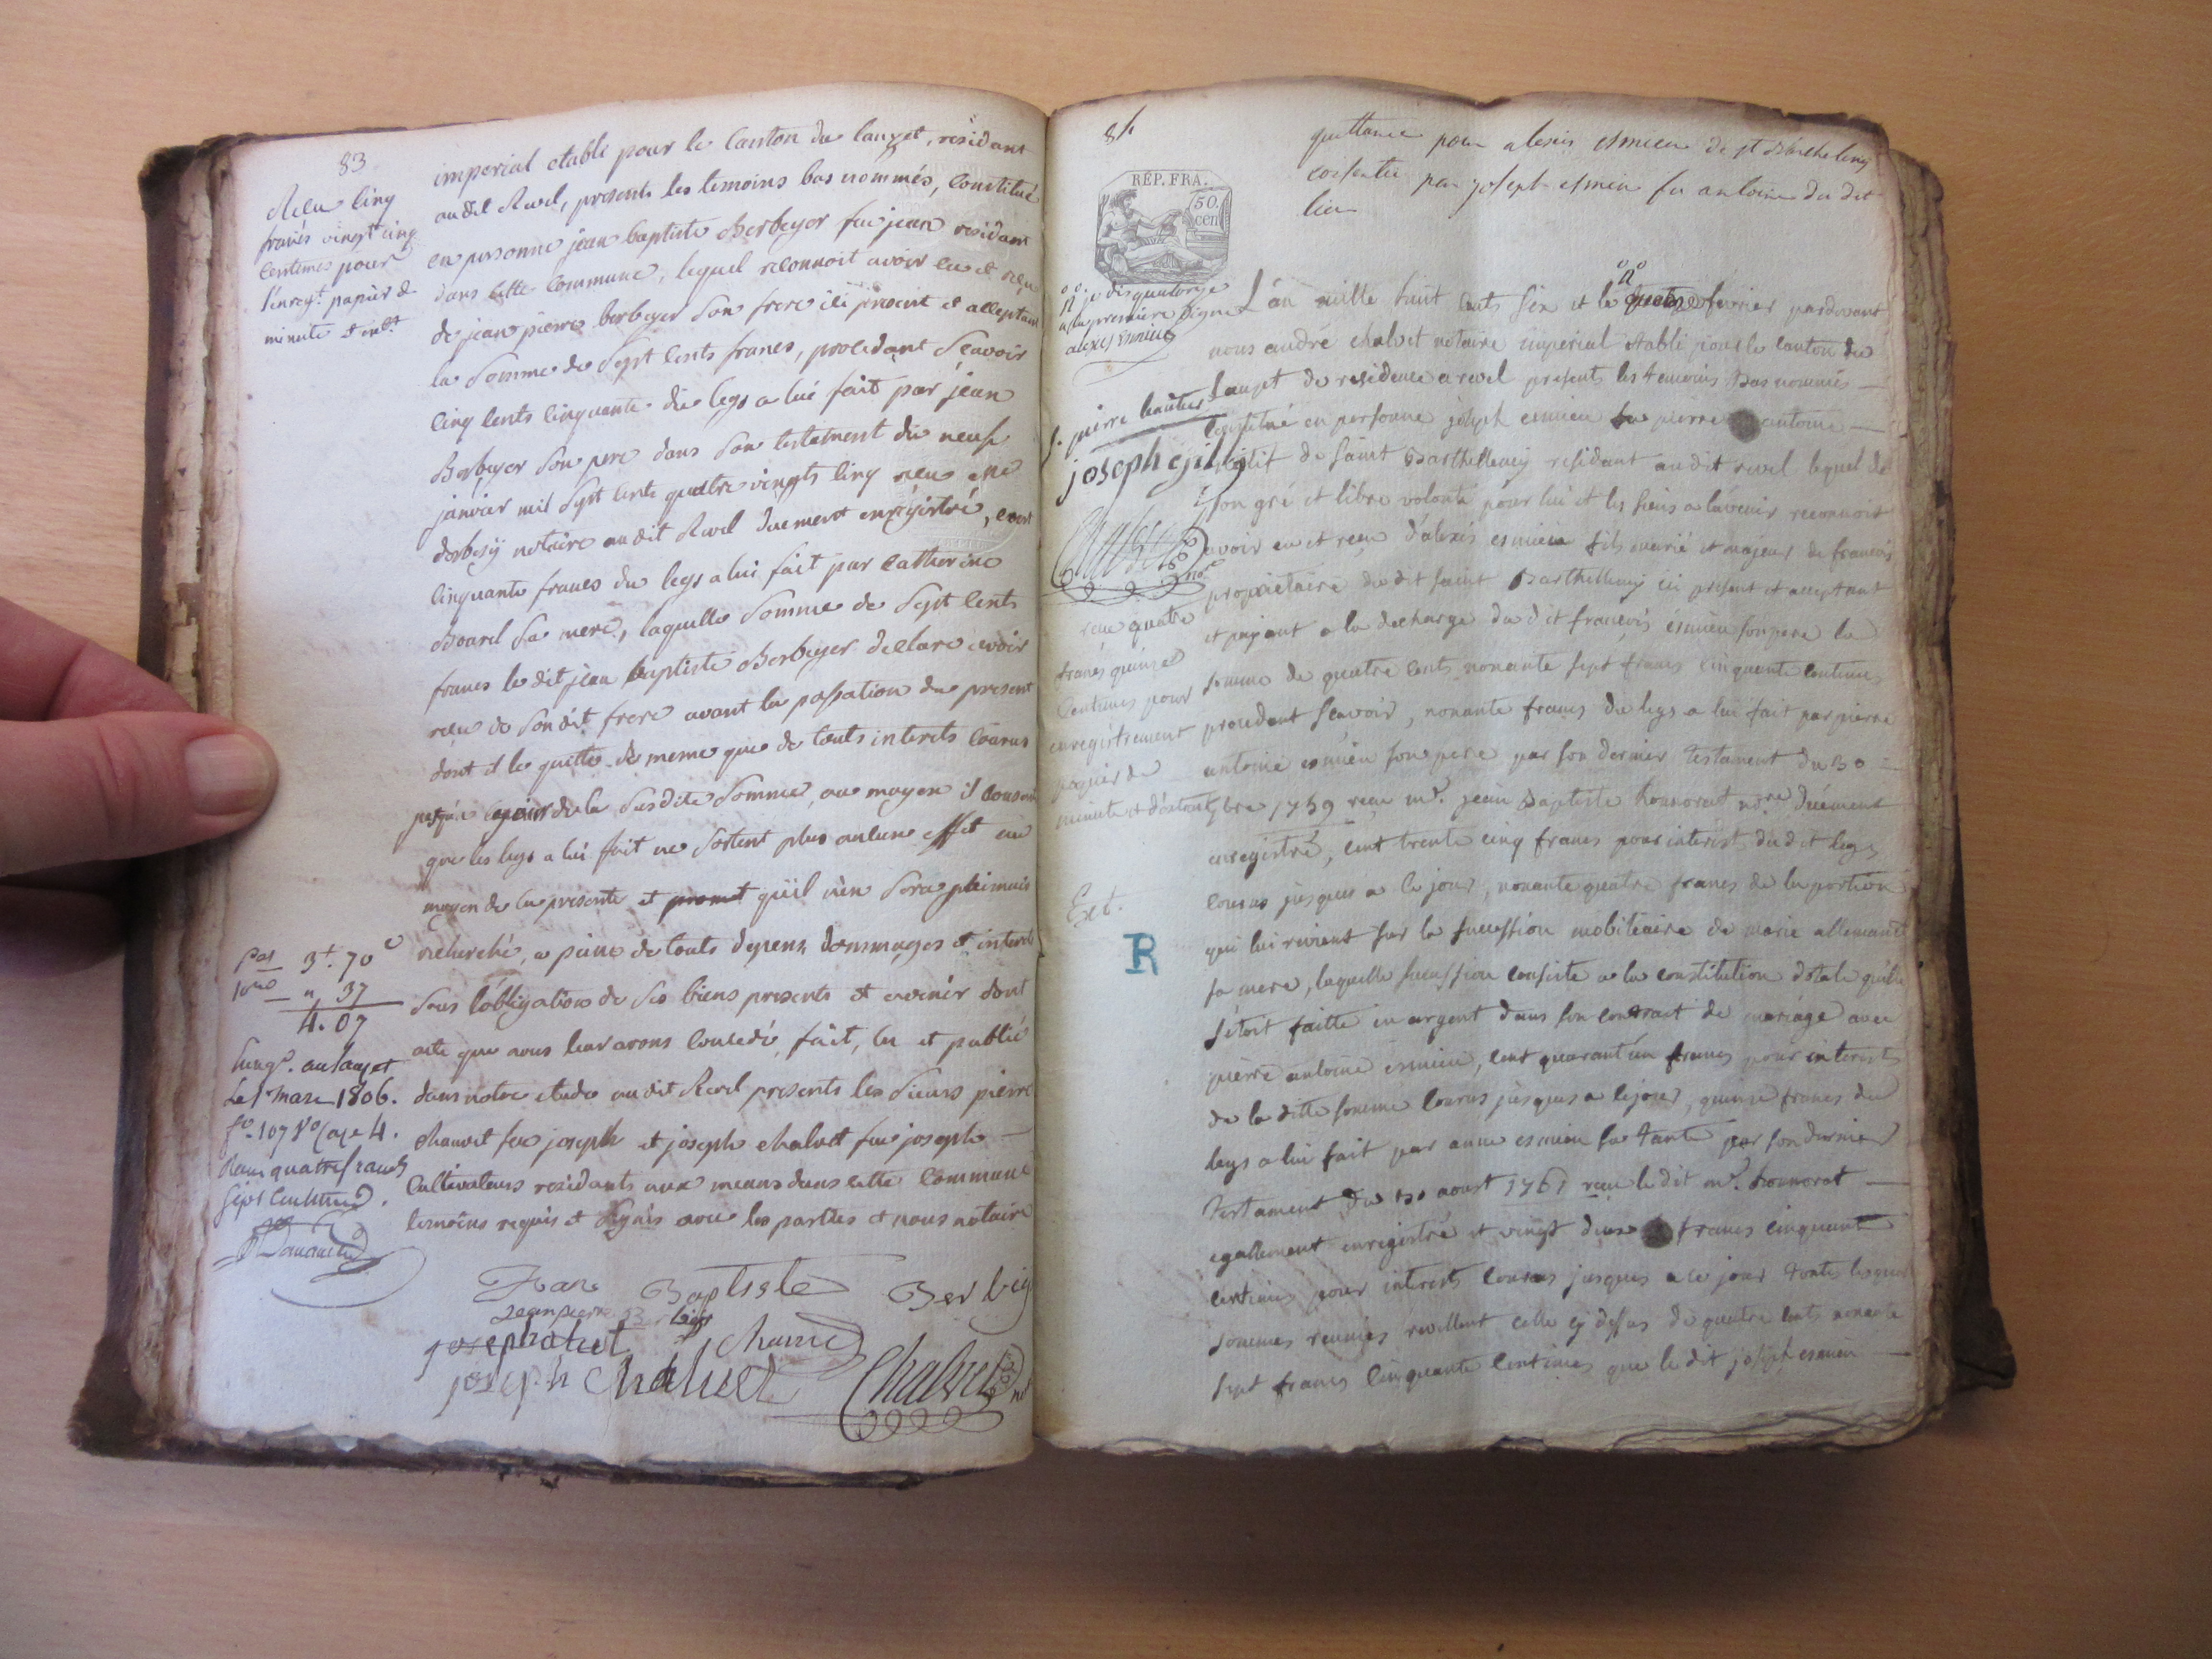 83
Recu cinq
francs vingt cinq
centimes pour
l'enregt. papier de
minute et
imperial etabli pour le canton du lauzet, residant
audit Revel, presents les temoins bas nommés, constitué
en personne jean baptiste Berbeyer feu jean residant
dans cette commune, lequel reconnoit avoir eu et reçu
de jean pierre berbeyer son frere ici present et acceptant
la somme de sept cents francs, procedant scavoir
cinq cents cinquante du legs a lui fait par jean
Berbeyer son pere dans son testament du neuf
janvier mil sept cents quatre vingts cinq recu me
notaire audit Revel duement enregistré, cent
cinquante francs du legs a lui fait par catherine
sa mere, laquelle somme de sept cents
francs le dit jean baptiste Berbeyer declare avoir
reçu de son dit frere avant la passation du present
dont il le quitte de meme que de touts interets courus
jusqu'a ce jour de la susdite somme, au moyen il consent
que les legs a lui fait ne sortent plus aucun effet au
moyen de la presente et promet qu'il n'en sera plus jamais
recherché, a peine de touts depens, dommages et interets
sous l'obligation de ses biens presents et avenir dont
acte que nous leur avons concedé, fait, lu et publié
dans notre etude audit Revel presents les sieurs pierre
chauvet feu joseph et joseph chalvet feu joseph
cultivateurs residants aux means dans cette commune
temoins requis et signés avec les parties et nous notaire
3f. 70c
" 37
4. 07
Enregé. au lauzet
Le 1er mars 1806.
fo. 107 Vo Case 4.
Recu quatre francs
sept centimes.
Jean Baptiste Berbeyer
jean pierre
joseph chalvet
joseph Chalvet Chalvet not
84
quittance pour alexis esmieu de st Barthelemy
consentie par joseph esmieu feu antoine du dit
lieu
RÉP. FRA.
50. cen
je dis quatorze
a la premiere ligne
alexis Esmieu
L'an mille huit cents six et le quatorze fevrier pardevant
nous andré chalvet notaire imperial etabli pour le canton du
Lauzet de residence a revel presents les temoins bas nommés
constitué en personne joseph esmieu feu pierre antoine
natif de saint Barthellemy residant audit revel lequel de
son gré et libre volonté pour lui et les siens a l'avenir reconnoit
avoir eu et reçu d'alexis esmieu fils marié et majeur de francois
propriétaire du dit saint Barthellemy ici present et acceptant
et payant a la decharge du dit francois esmieu son pere la
somme de quatre cents nonante sept francs cinquante centimes
procedant scavoir, nonante francs du legs a lui fait par pierre
antoine esmieu son pere par son dernier testament du 30
7bre 1759 reçu me. jean Baptiste honnorat nore duement
enregistré, cent trente cinq francs pour interest du dit legs
courus jusques a ce jour, nonante quatre francs de la portion
qui lui revient sur la succession mobiliaire de marie allemand
sa mere, laquelle succession consiste a la constitution dotale qu'elle
s'étoit faitte en argent dans son contrait de mariage avec
pierre antoine esmieu, cent quarant'un francs pour interests
de la ditte somme courus jusques a ce jour, quinze francs du
legs a lui fait par anne esmieu sa tante par son dernier
testament du aoust 1761 reçu le dit me. honnorat
egallement enregistré et vingt deux francs cinquante
centimes pour interests courus jusques a ce jour toutes lesquelles
sommes reunies revellent celle cy dessus de quatre cents nonante
sept francs cinquante centimes que le dit joseph esmieu
joseph
nore
recu quatre
francs quinze
centimes pour
enregistrement
papier de
minute et
Ext.
R